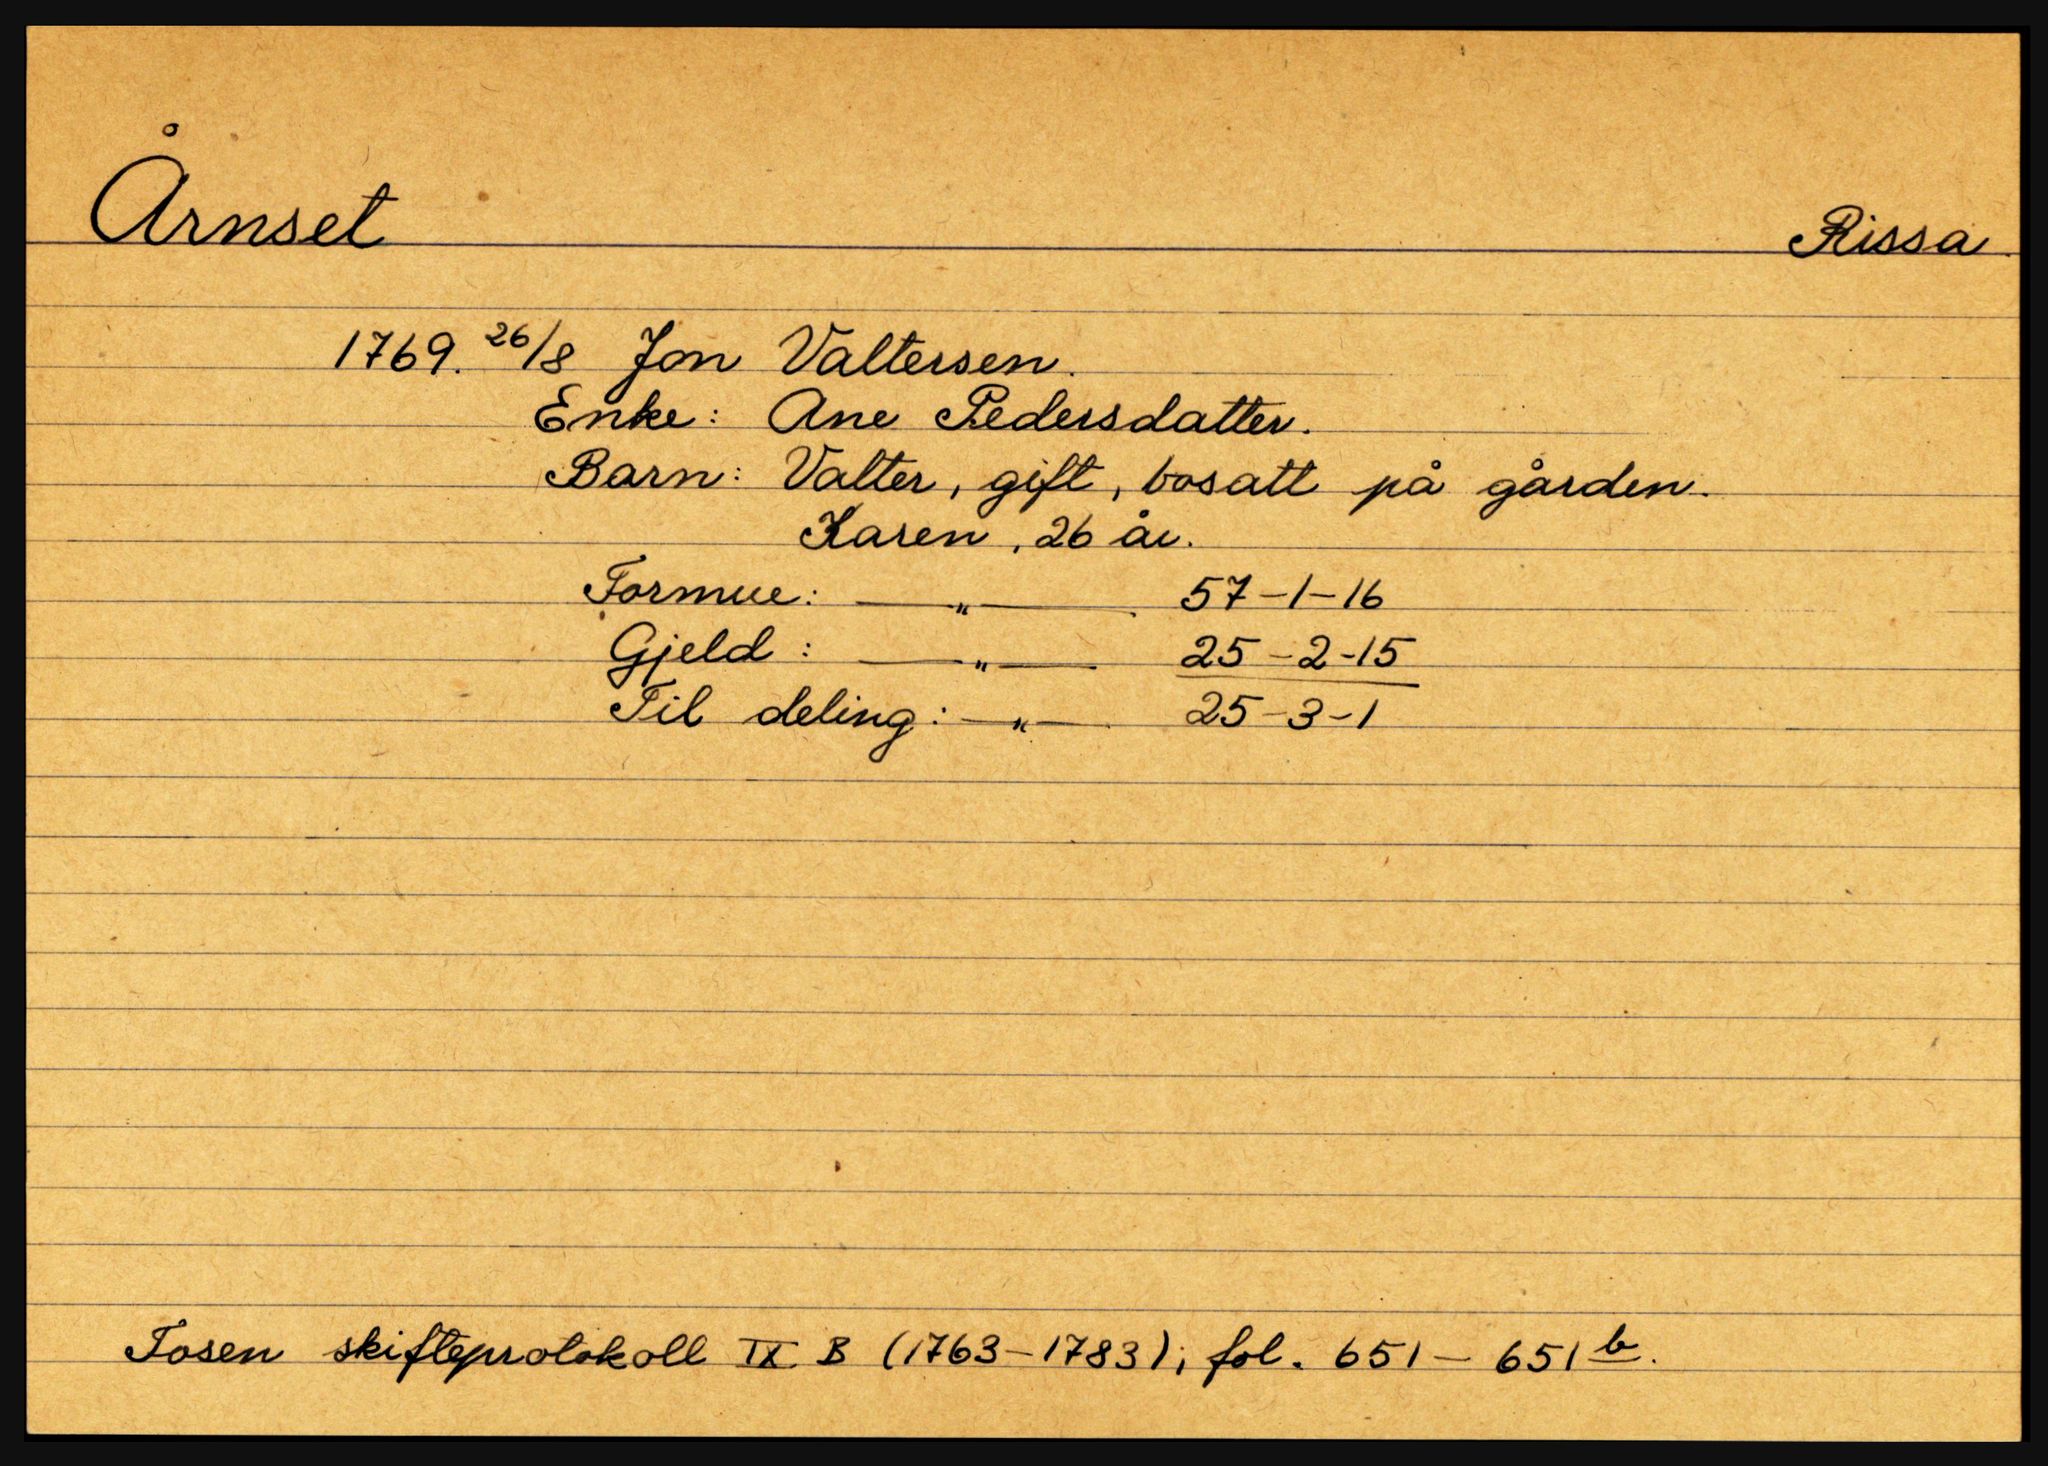 Årnset Rissa.
1769. 26/8 Jon Valtersen.
Enke: Ane Pedersdatter.
Barn: Valter, gift, bosatt på gården.
Karen, 26 år.
Formue: — " — 57-1-16
Gjeld: — " — 25-2-15
Til deling: — " — 25-3-1
Fosen skifteprotokoll IX B (1763-1783), fol. 651 - 651 b.